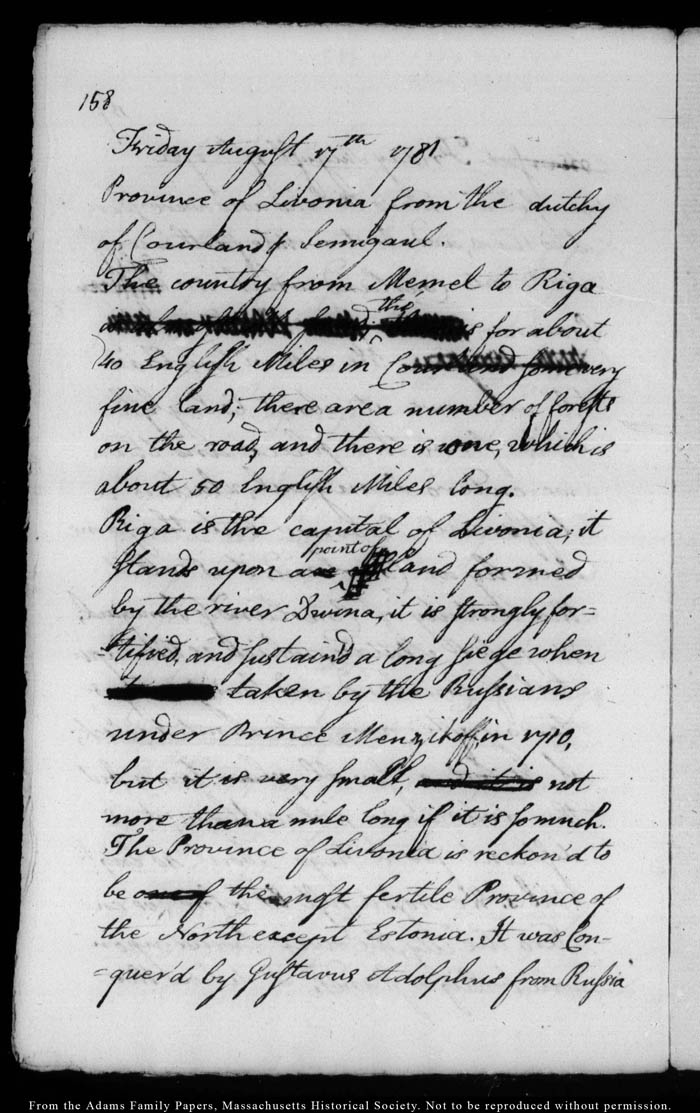 158
Friday August 17th 1781
Province of Livonia from the dutchy
of Courland & Semigaul.
The country from Memel to Riga
this
is for about
40 English Miles in Courland some very
fine land; there are a number of forests
on the road, and there is one, which is
about 50 English Miles long.
Riga is the capital of Livonia; it
point of
stands upon a land formed
by the river Dwina, it is strongly for=
=tified, and sustain'd a long siege when
taken by the Russians
under Prince Menzikoff, in 1710,
but it is very small, and it is not
more than a mile long if it is so much.
The Province of Livonia is reckon'd to
be one of the most fertile Province of
the North except Estonia. It was Con-
=quer'd by Gustavus Adolphus from Russia
From the Adams Family Papers, Massachusetts Historical Society. Not to be reproduced without permission.